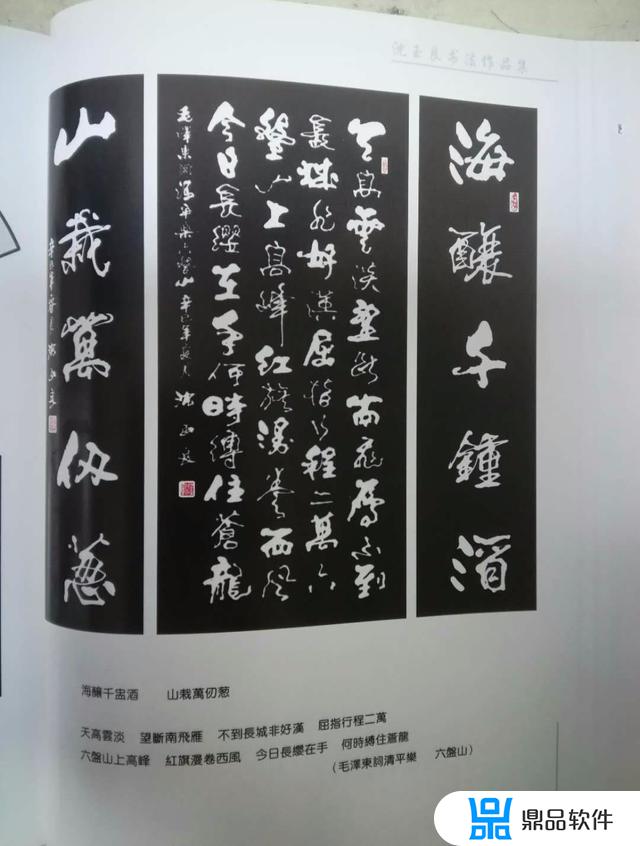 沈玉良书法作品集
海釀千鍾酒
天高雲淡望斷南飛雁不到
長城非好漢屈指行程二萬六
盤山上高峰紅旗漫卷西風
今日長纓在手何時縛住蒼龍
毛澤東詞清平樂六盤山辛巳年夏月沈玉良
山栽萬仞葱
辛巳年夏月沈玉良
海釀千盅酒 山栽萬仞葱
天高雲淡 望斷南飛雁 不到長城非好漢 屈指行程二萬
六盤山上高峰 紅旗漫卷西風 今日長纓在手 何時縛住蒼龍
(毛澤東詞清平樂 六盤山)
鼎品软件